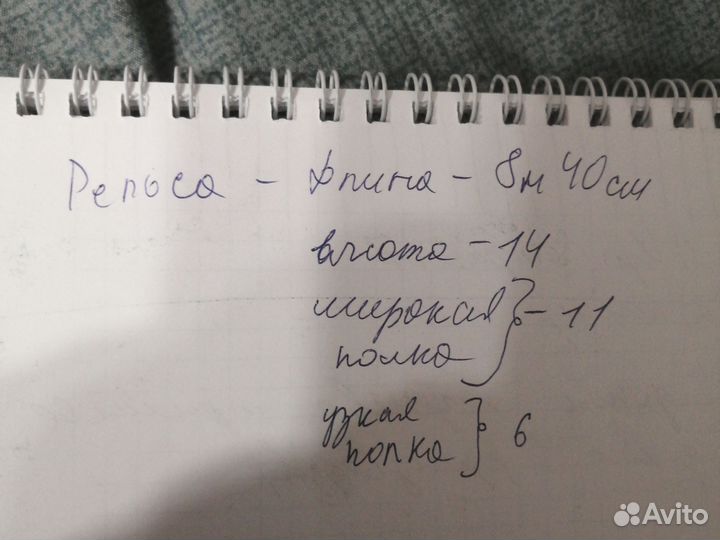 Рельса - длина - 8м 40см
высота - 14
широкая
полка } - 11
узкая
полка } 6
Avito